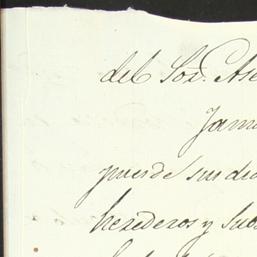 del Sor. Ase
Jam
puede sin du
herederos y suc